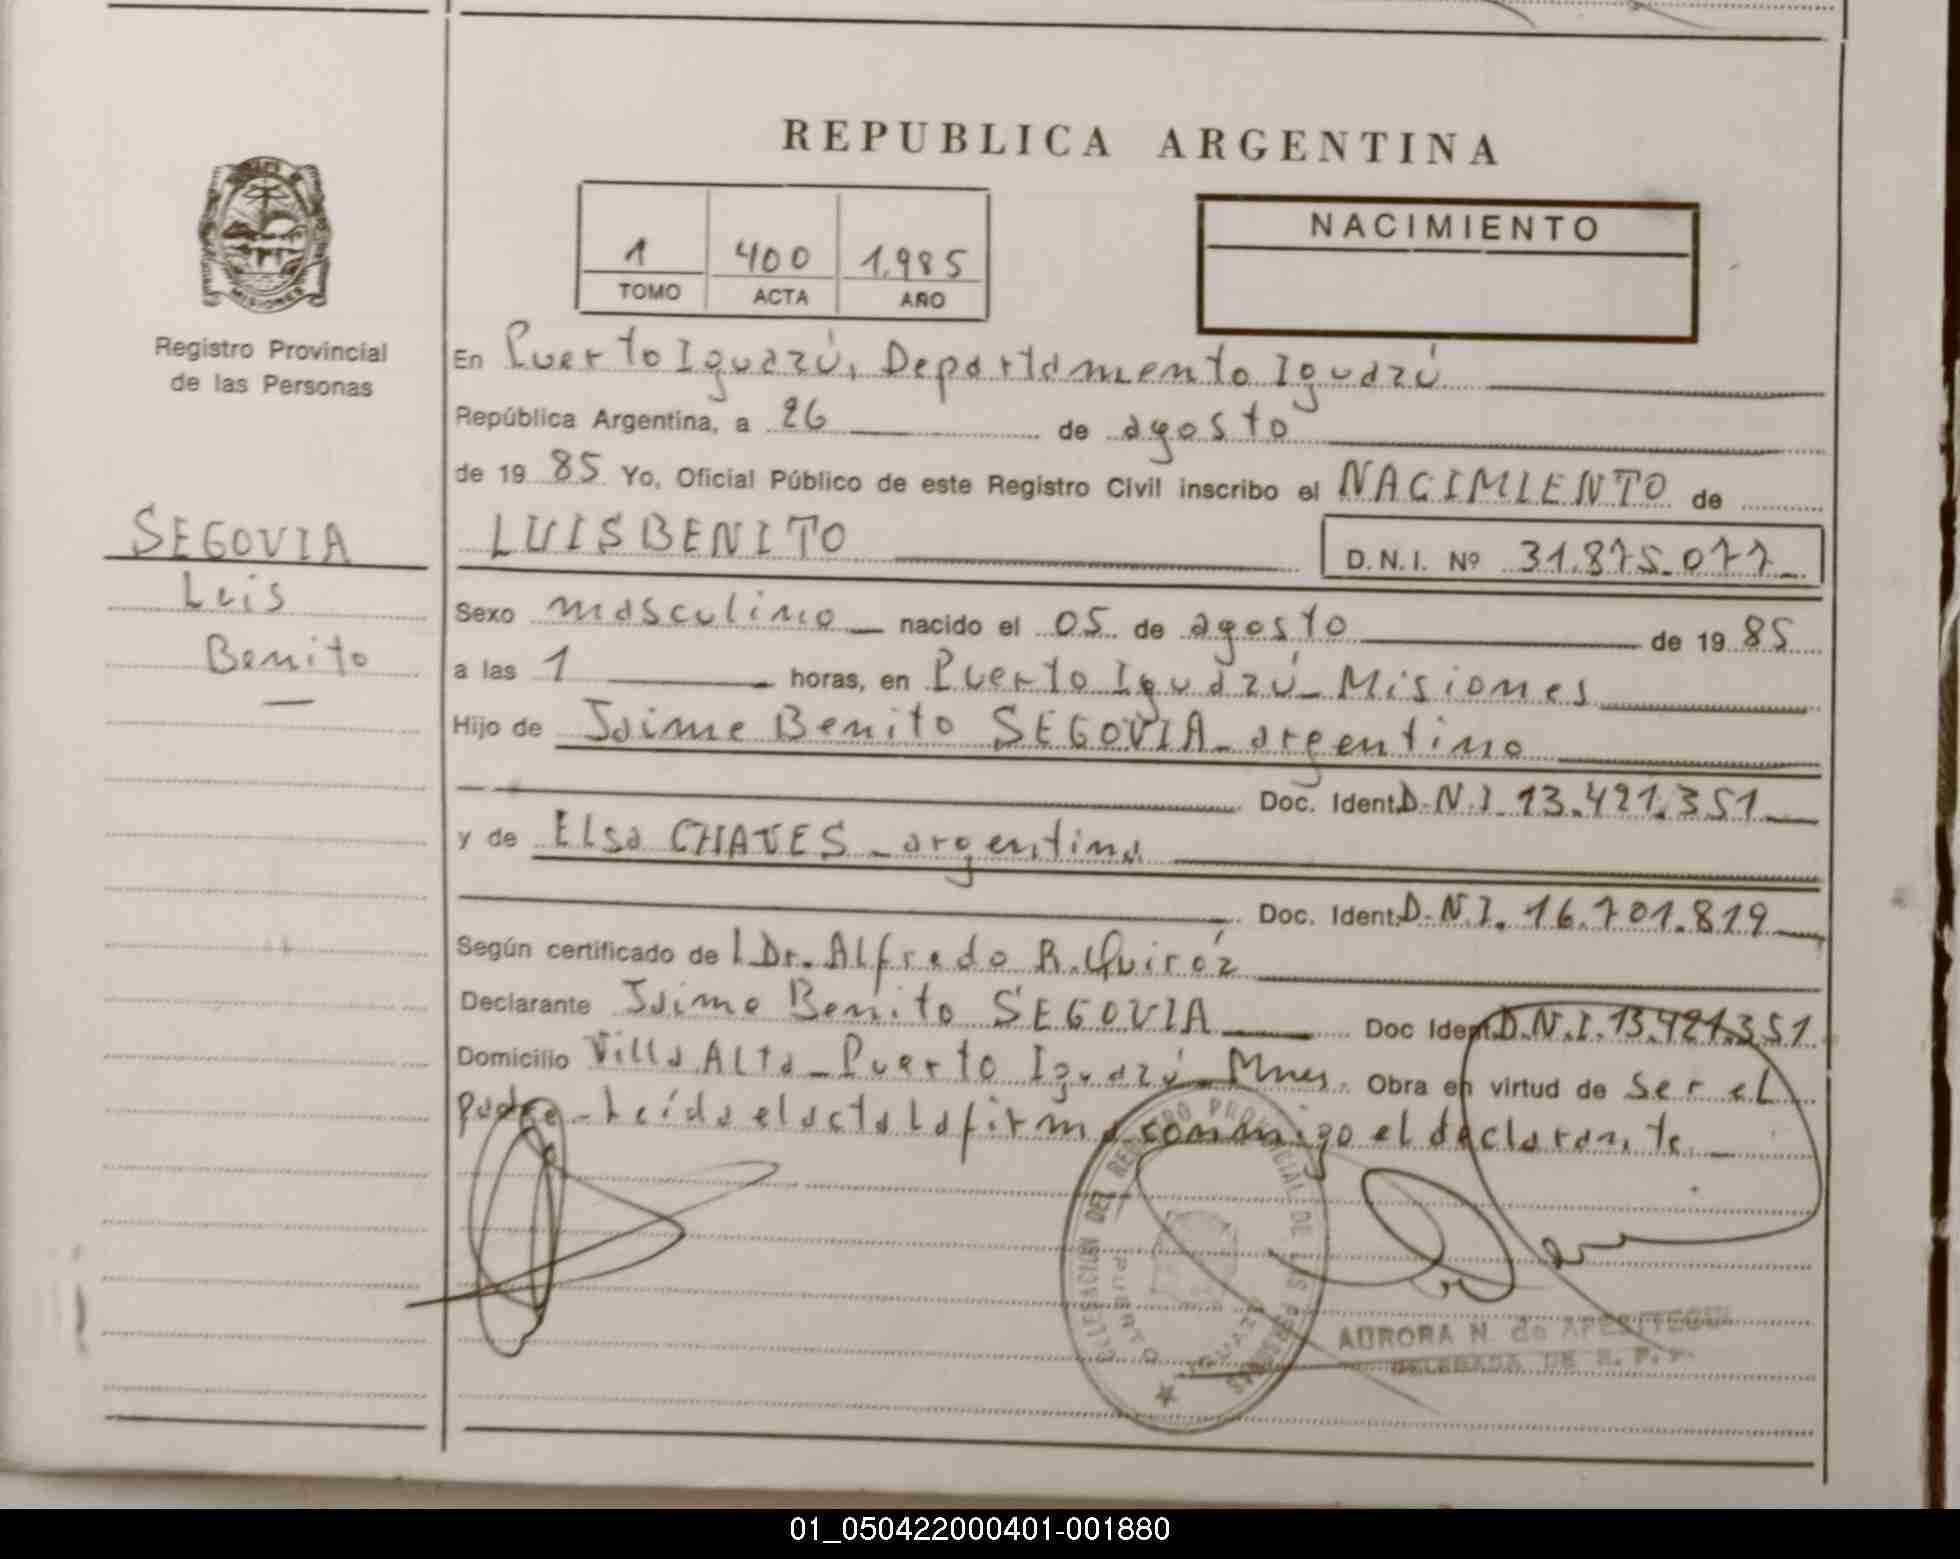 REPUBLICA ARGENTINA
MISIONES
Registro Provincial
de las Personas
1 400 1.985
TOMO ACTA AÑO
NACIMIENTO
En Puerto Iguazú, Departamento Iguazú
República Argentina, a 26 de agosto
de 19 85 Yo, Oficial Público de este Registro Civil inscribo el NACIMIENTO de
SEGOVIA
Luis
Benito
LUIS BENITO D.N.I. Nº 31.875.077
Sexo masculino nacido el 05 de agosto de 19 85
a las 1 horas, en Puerto Iguazú - Misiones
Hijo de Jaime Benito SEGOVIA - argentino
Doc. Ident. D.N.I. 13.421.351
y de Elsa CHAVES - argentina
Doc. Ident. D.N.I. 16.701.819
Según certificado de l Dr. Alfredo R. Quiróz
Declarante Jaime Benito SEGOVIA Doc Ident D.N.I. 13.421.351
Domicilio Villa Alta - Puerto Iguazú - Mnes. Obra en virtud de ser el
padre - Leída el acta la firma conmigo el declarante. -
DELEGACION DEL REGISTRO PROVINCIAL DE LAS PERSONAS
PUERTO IGUAZU
AURORA N. de APESITEGUI
DELEGADA DE R. P. P.
01_050422000401-001880